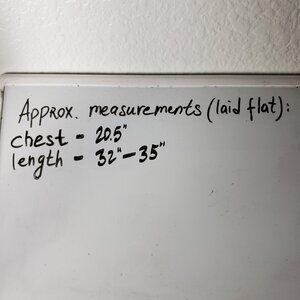 Approx. measurements (laid flat):
chest - 20.5"
length - 32" - 35"